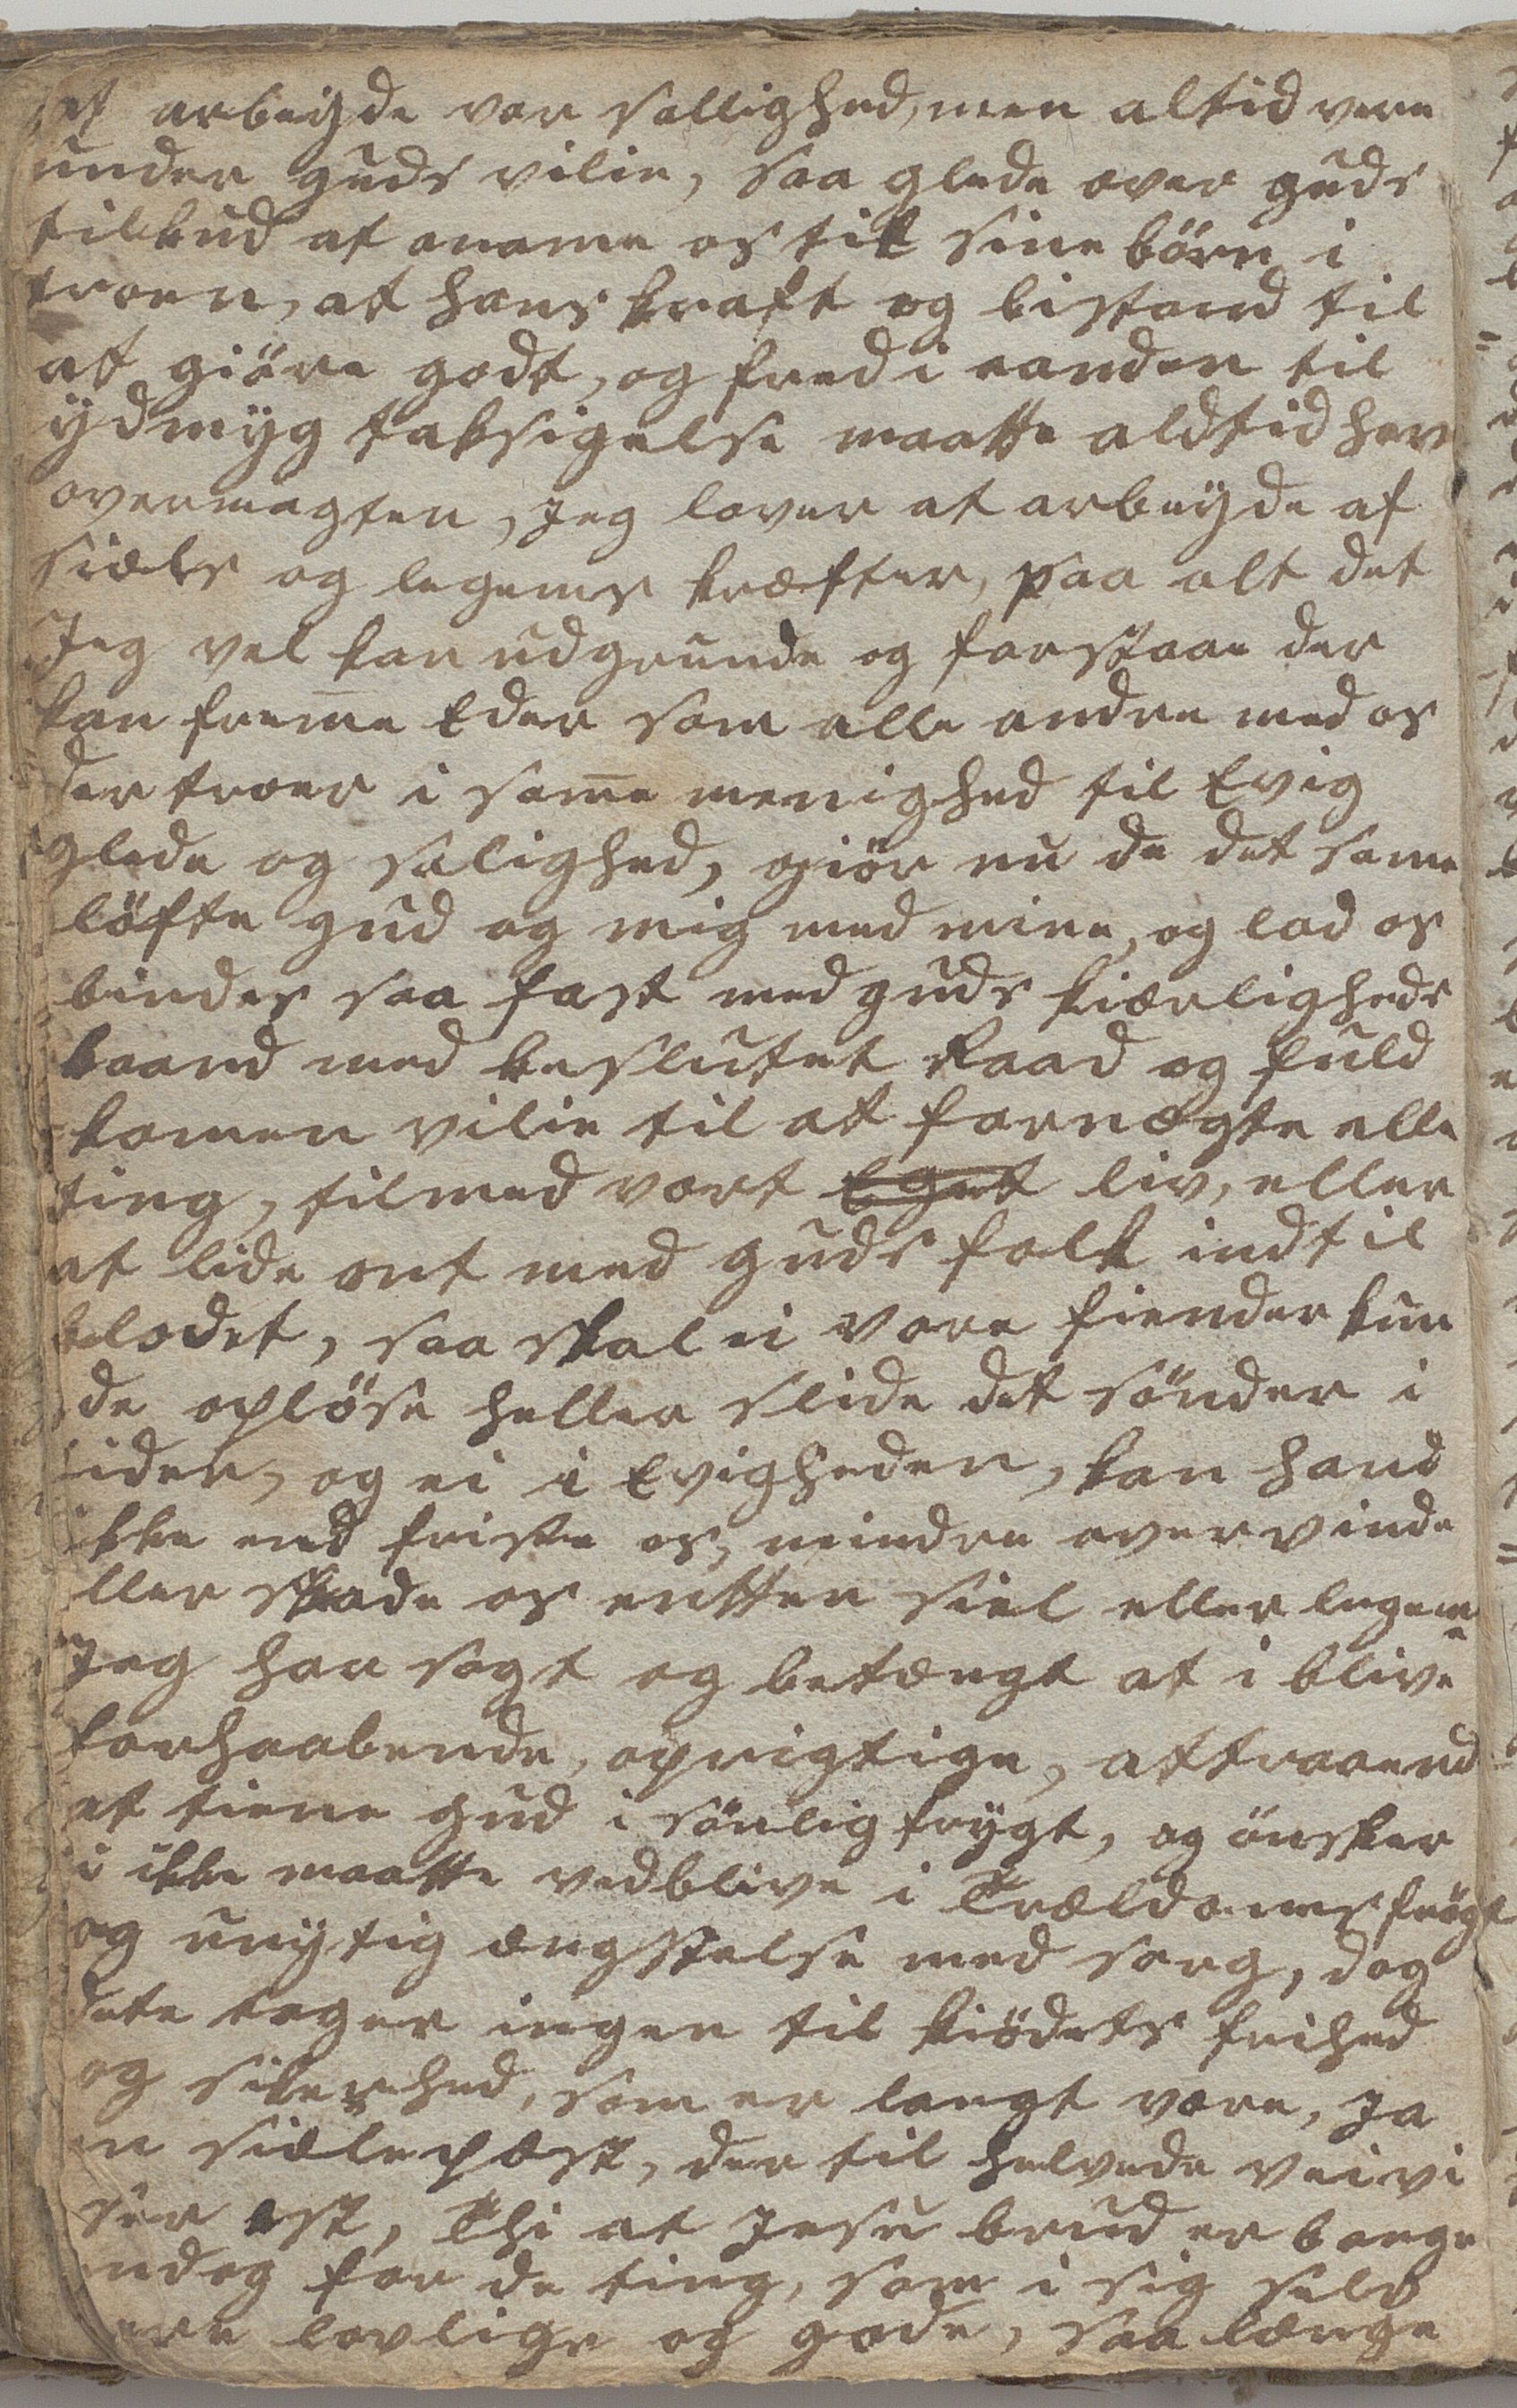 at arbeyde vor sallighed, men altid vere
under guds vilie, saa glede over guds
tilbud at aname os til sine börn i
troen, at hans kraft og bistand til
at giöre godt, og fred i aanden til
ydmyg taksigelse maatte aldtid hav
overmagten, Jeg lover at arbeyde af
siæls og legems kræfter, paa alt det
Jeg vel kan udgrunde og forstaae der
kan fremme Eder som alle andre med os
der troer i samme menighed til Evig
glede og salighed, giör nu de det same
löfte gud og mig med mine, og lad os
bindes saa fast med guds kiærligheds
baand med besluttet Raad og fuld
komen vilie til at fornægte alle
ting, tilmed vort Eget liv, eller
at lide ont med guds folk indtil
blodet, saa skal ei vore fiender kun
de oplöse heller slide det sönder i
tiden, og ei i Evigheden, kan hand
ikke end friste os, mindre overvinde
eller skade os entten siel eller legeme
Jeg har sagt og betængt at i blive
forhaabende, oprigtige, attraaend
at tiene gud i sönlig frygt, og önsker
i ikke maatte vedblive i Trældoms frögt
og unytig ængstelse med sorg, dog
dete tager ingen til kiödets frihed
og sikerhed, som er langt være, Ja
en siælepest, der til helvede veivi
ser est, Thi at Jesu brud er bange
endog for de ting, som i sig selv
ere lovlige og gode, saa længe